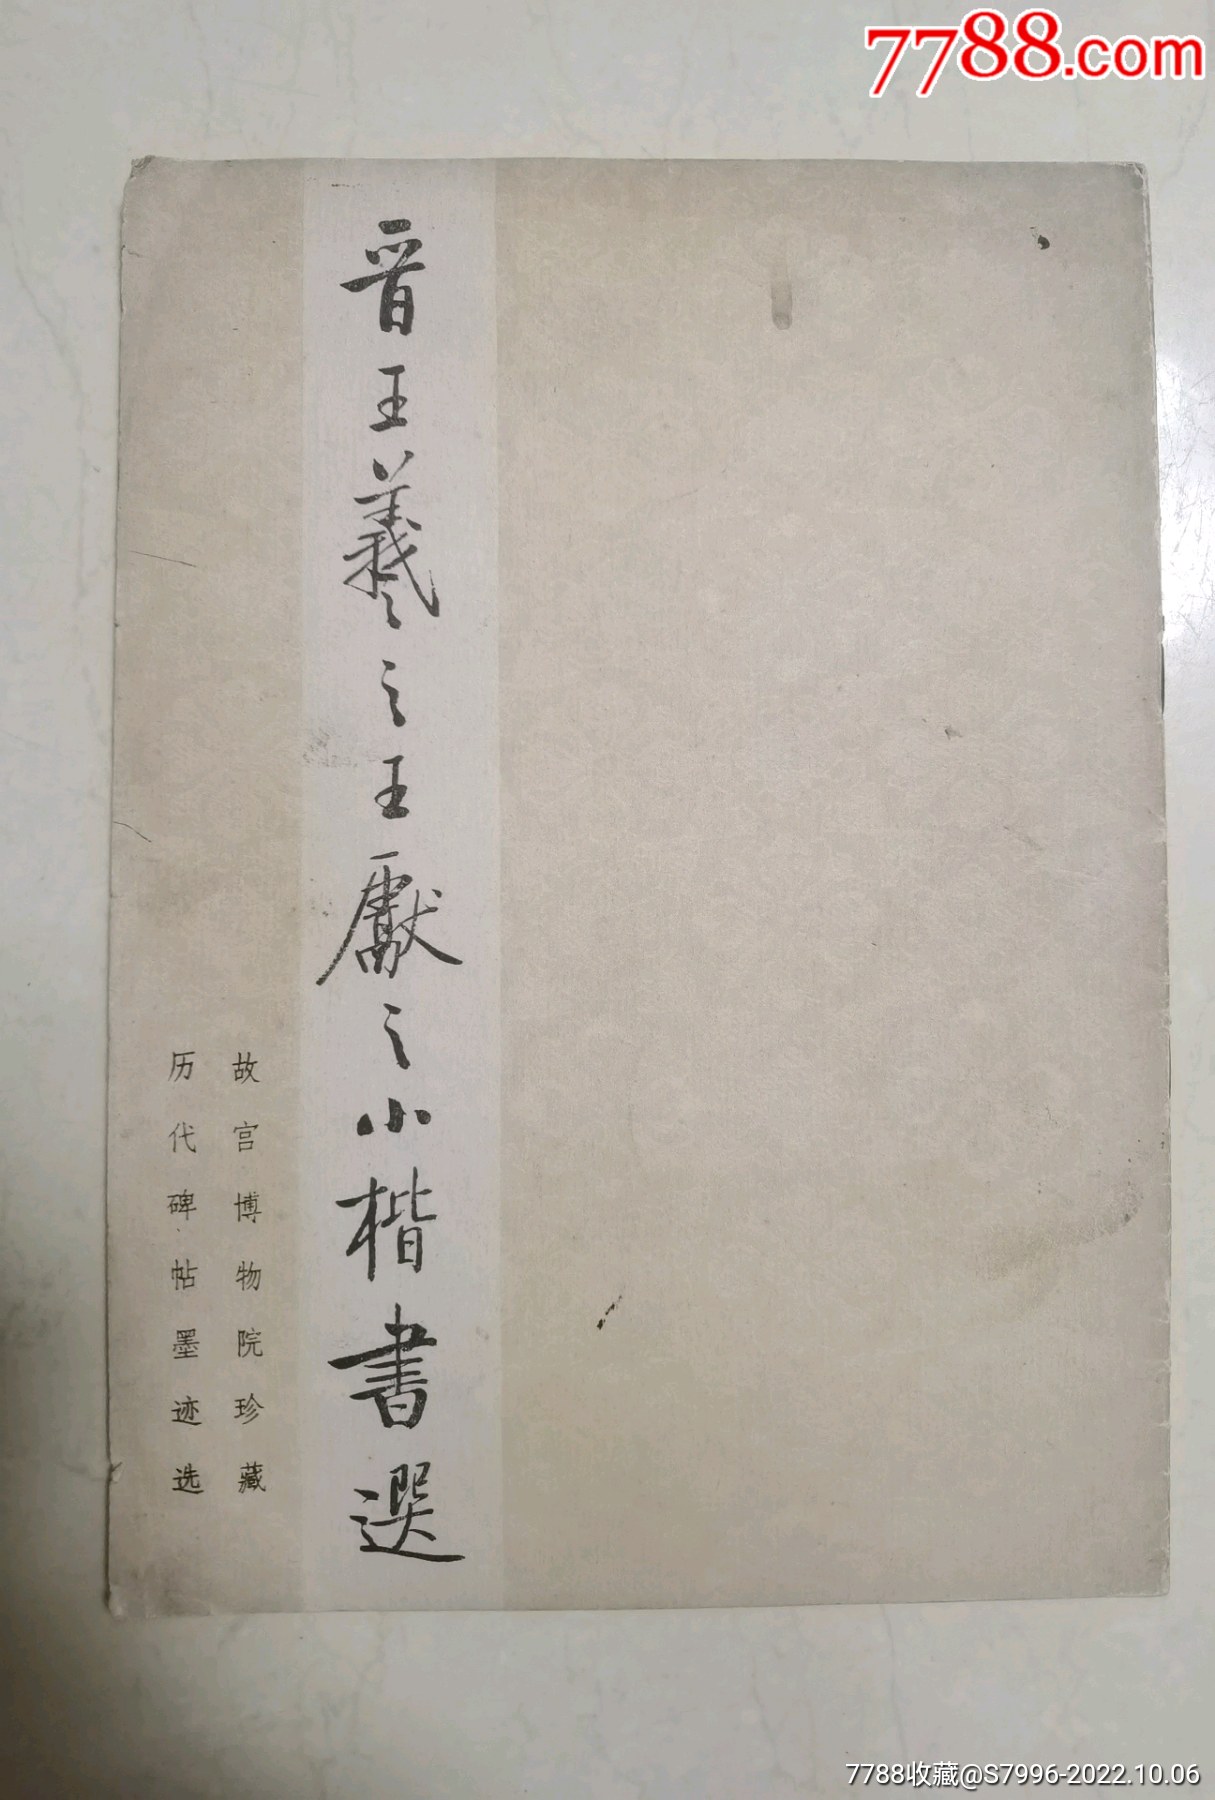 7788.com
晋王羲之王獻之小楷書選
故宫博物院珍藏
历代碑帖墨迹选
7788收藏@S7996-2022.10.06